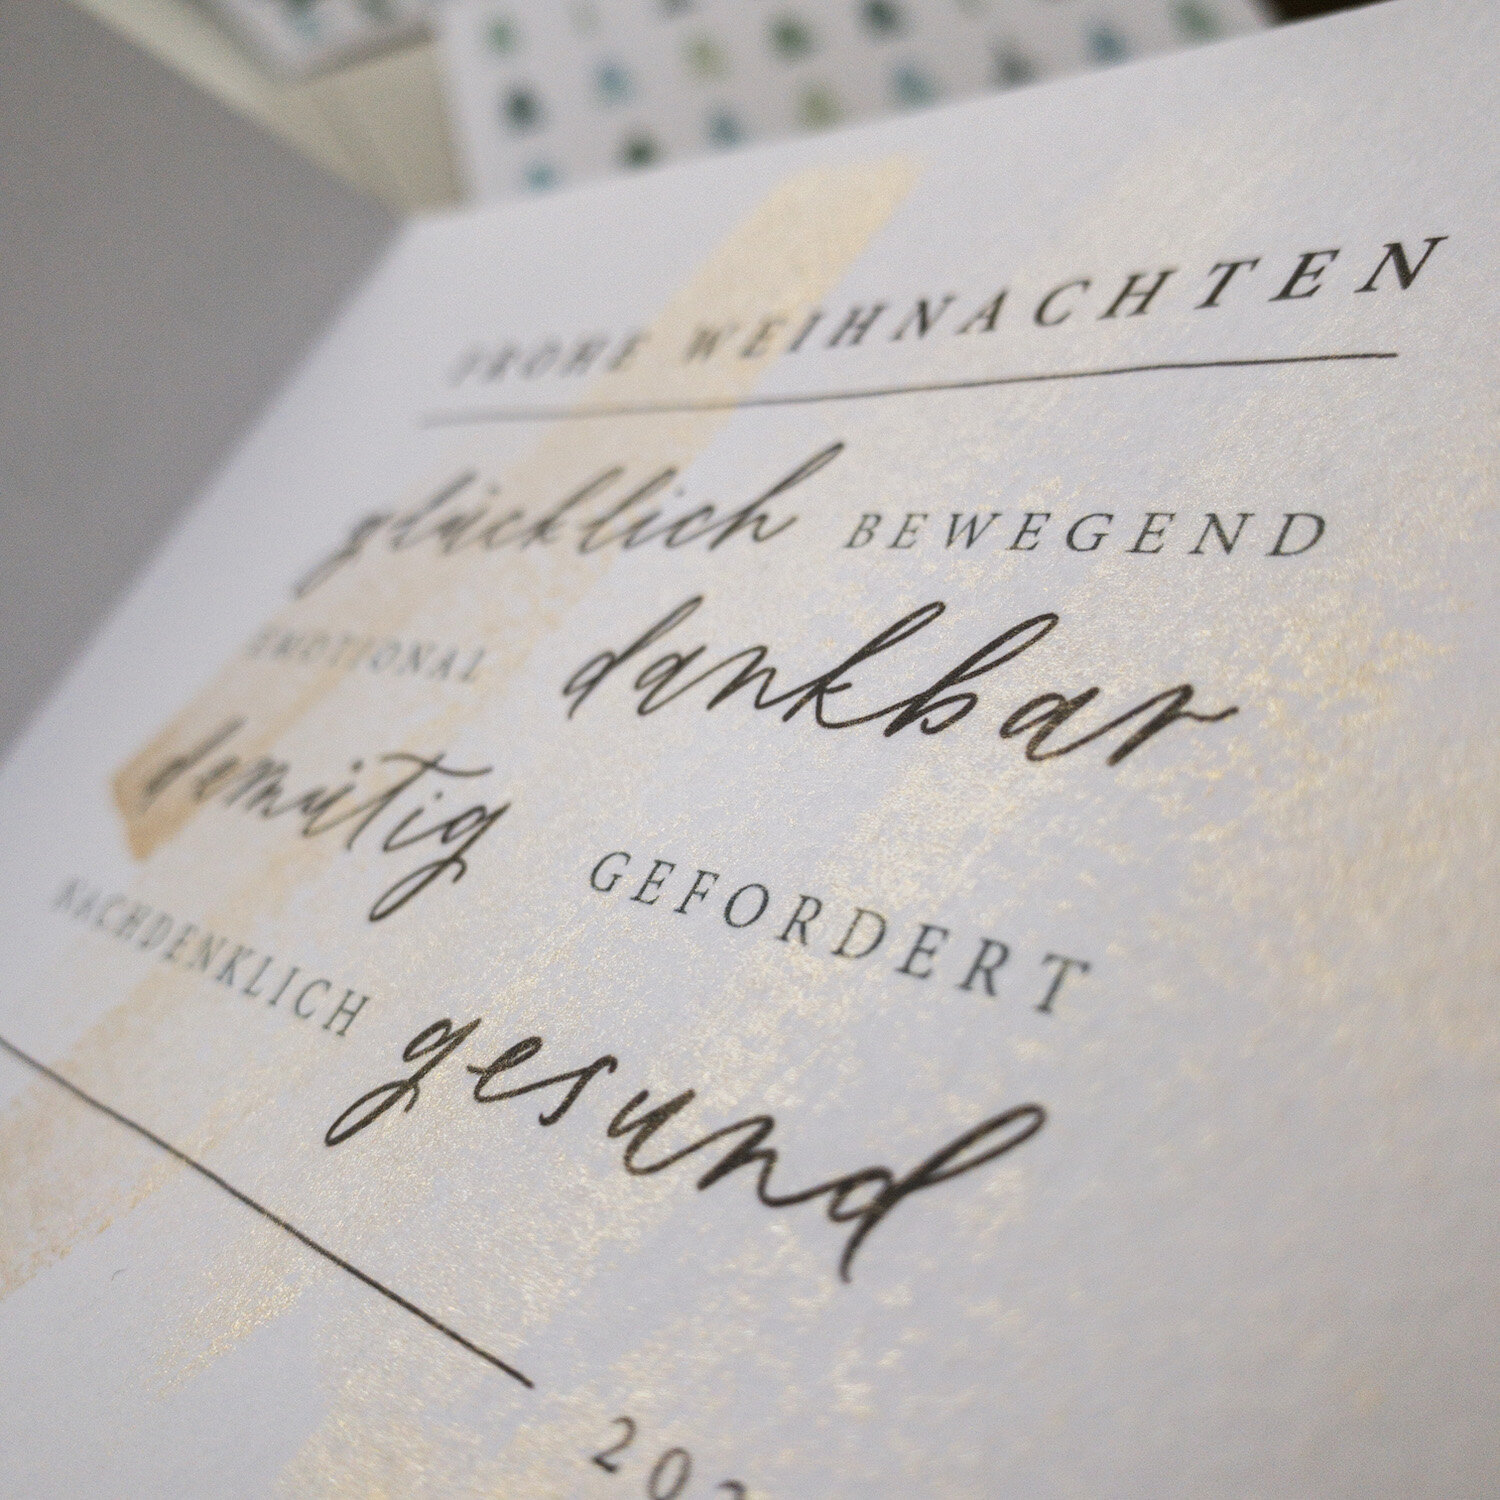 FROHE WEIHNACHTEN
glücklich BEWEGEND
EMOTIONAL dankbar
demütig GEFORDERT
NACHDENKLICH gesund